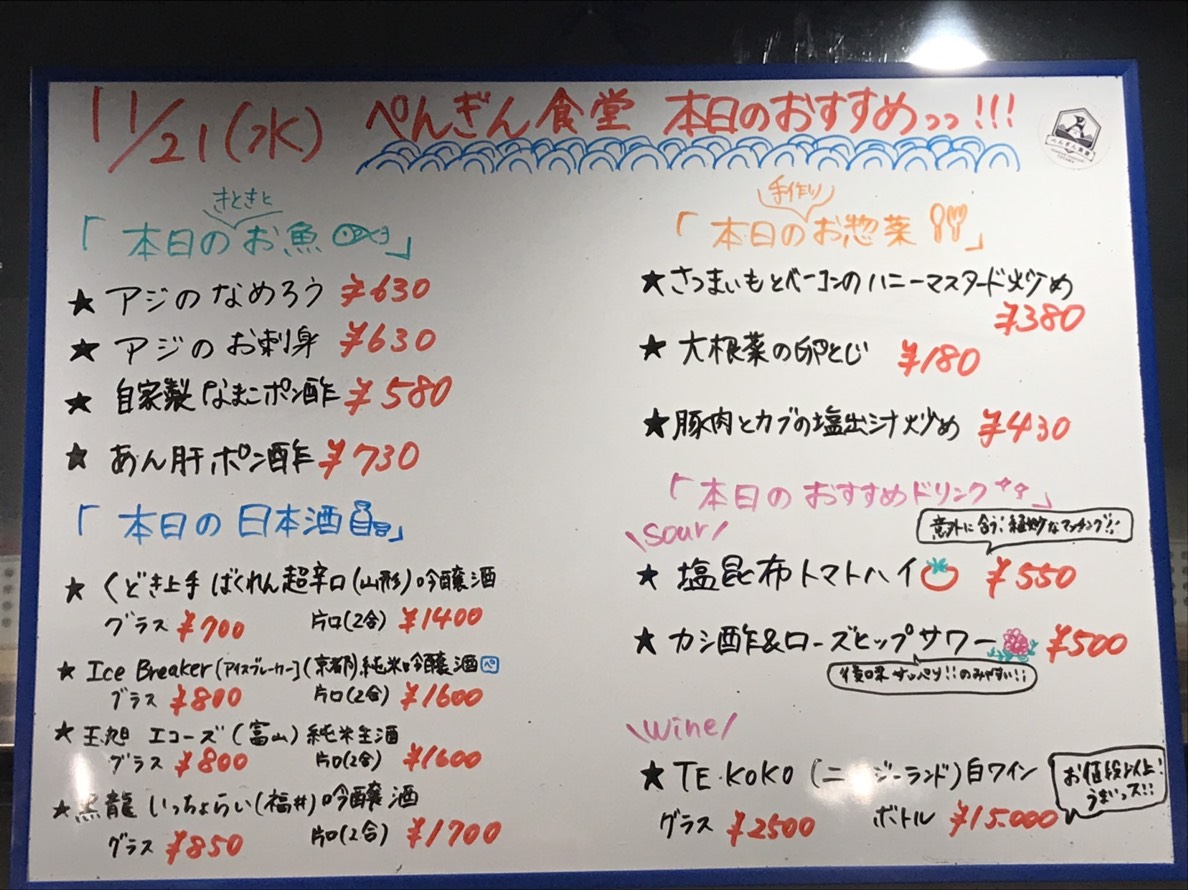 11/21(水) ぺんぎん食堂 本日のおすすめっっ!!!
きときと
「本日のお魚」
★アジのなめろう ¥630
★アジのお刺身 ¥630
★自家製なまこポン酢 ¥580
★あん肝ポン酢 ¥730
「本日の日本酒」
★くどき上手 ばくれん 超辛口(山形)吟醸酒
グラス ¥700 片口(2合) ¥1400
★Ice Breaker(アイスブレーカー)(京都)純米吟醸酒 ペ
グラス ¥800 片口(2合) ¥1600
★玉旭 エコーズ(富山)純米生酒
グラス ¥800 片口(2合) ¥1600
★黒龍 いっちょらい(福井)吟醸酒
グラス ¥850 片口(2合) ¥1700
手作り
「本日のお惣菜」
★さつまいもとベーコンのハニーマスタード炒め
¥380
★大根菜の卵とじ ¥180
★豚肉とカブの塩出汁炒め ¥430
「本日のおすすめドリンク」
\Sour/
意外に合う!絶妙なマッチング!!
★塩昆布トマトハイ ¥550
★カシ酢&ローズヒップサワー ¥500
後味サッパリ!!のみやすい!!
\Wine/
★TE・KOKO(ニュージーランド)白ワイン
グラス ¥2500 ボトル ¥15.000
お値段以上!
うまいっス!!
ぺんぎん食堂